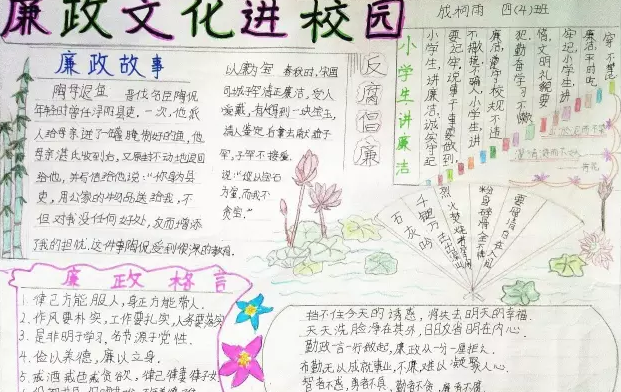 廉政文化进校园
成柯雨 四(4)班
廉政故事
陶母返鱼 晋代名臣陶侃
年轻时曾任浔阳县吏。一次,他派
人给母亲送了一罐腌制好的鱼,他
母亲湛氏收到后,又原封不动地退回
给他,并写信给他说:"你身为县
吏,用公家的物品送给我,不
但对我没任何好处,反而增添
了我的担忧。这件事陶侃受到很深的教育。
以廉为宝 春秋时,宋国
司城子罕清正廉洁,受人
爱戴,有人得到一块宝玉,
请人鉴定后拿去献给子
罕,子罕不接受,
说:"您以宝石
为宝,而我不
贪宝。"
反腐倡廉
小学生讲廉洁
小学生,讲廉洁,诚实守纪
要记牢,说事干事要做到,
不撒谎不骗人,小学生,讲
廉洁,遵守校规不违
犯,勤奋学习不懒
惰,文明礼貌要
牢记,小学生,讲
廉洁,平时吃
石灰吟
千锤万凿出深山
烈火焚烧若等闲
粉身碎骨全不怕
要留清白在人间
廉政格言
1. 律己方能服人,身正方能带人.
2. 作风要朴实,工作要扎实,人务要落实
3. 是非明于学习,名节源于党性.
4. 俭以养德,廉以立身.
挡不住今天的诱惑,将失去明天的幸福.
天天洗脸净在其外,日日反省明在内心.
勤政言一行做起,廉政从一分一厘拒之.
布勤无以成就事业,不廉难以凝聚人心.